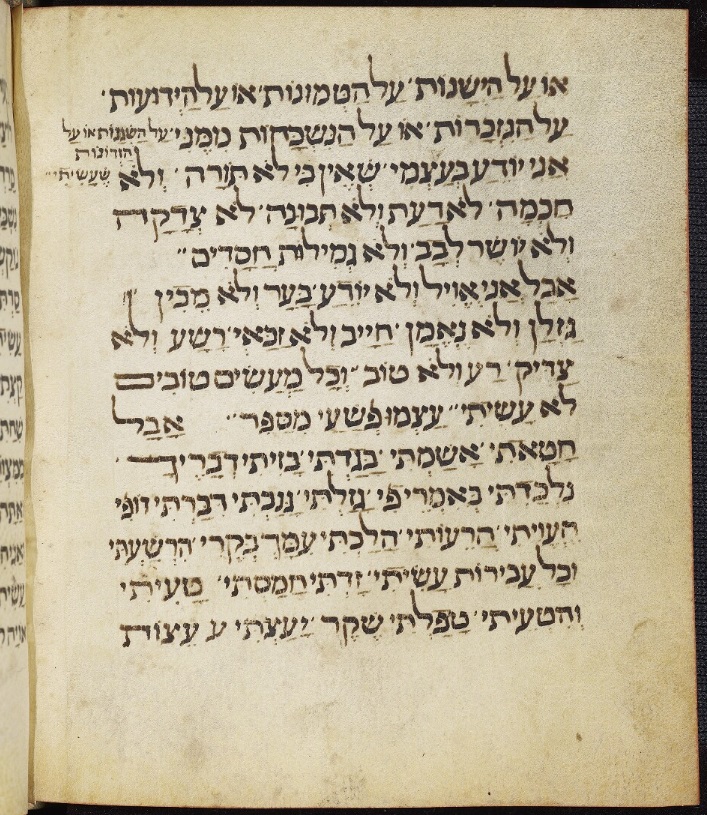 או על הישנות על הטמונות או על הידועות
על הנזכרות או על הנשכחות ממני
על השגגות או על
הזדונות
שעשיתי
אני יודע בעצמי שאין בי לא תורה ולא
חכמה לא דעת ולא תבונה לא צדקה
ולא יושר לבב ולא גמילות חסדים
אבל אני אויל ולא יודע בער ולא מבין
גזלן ולא נאמן חייב ולא זכאי רשע ולא
צדיק רע ולא טוב וכל מעשים טובים
לא עשיתי עצמו פשעי מספר אבל
חטאתי אשמתי בגדתי בזיתי דבריך
נלכדתי באמרי פי גזלתי גנבתי דברתי דופי
העויתי הרעותי הלכתי עמך בקרי הרשעתי
וכל עבירות עשיתי זדתי חמסתי טעיתי
והטעיתי טפלתי שקר יעצתי ע עצות